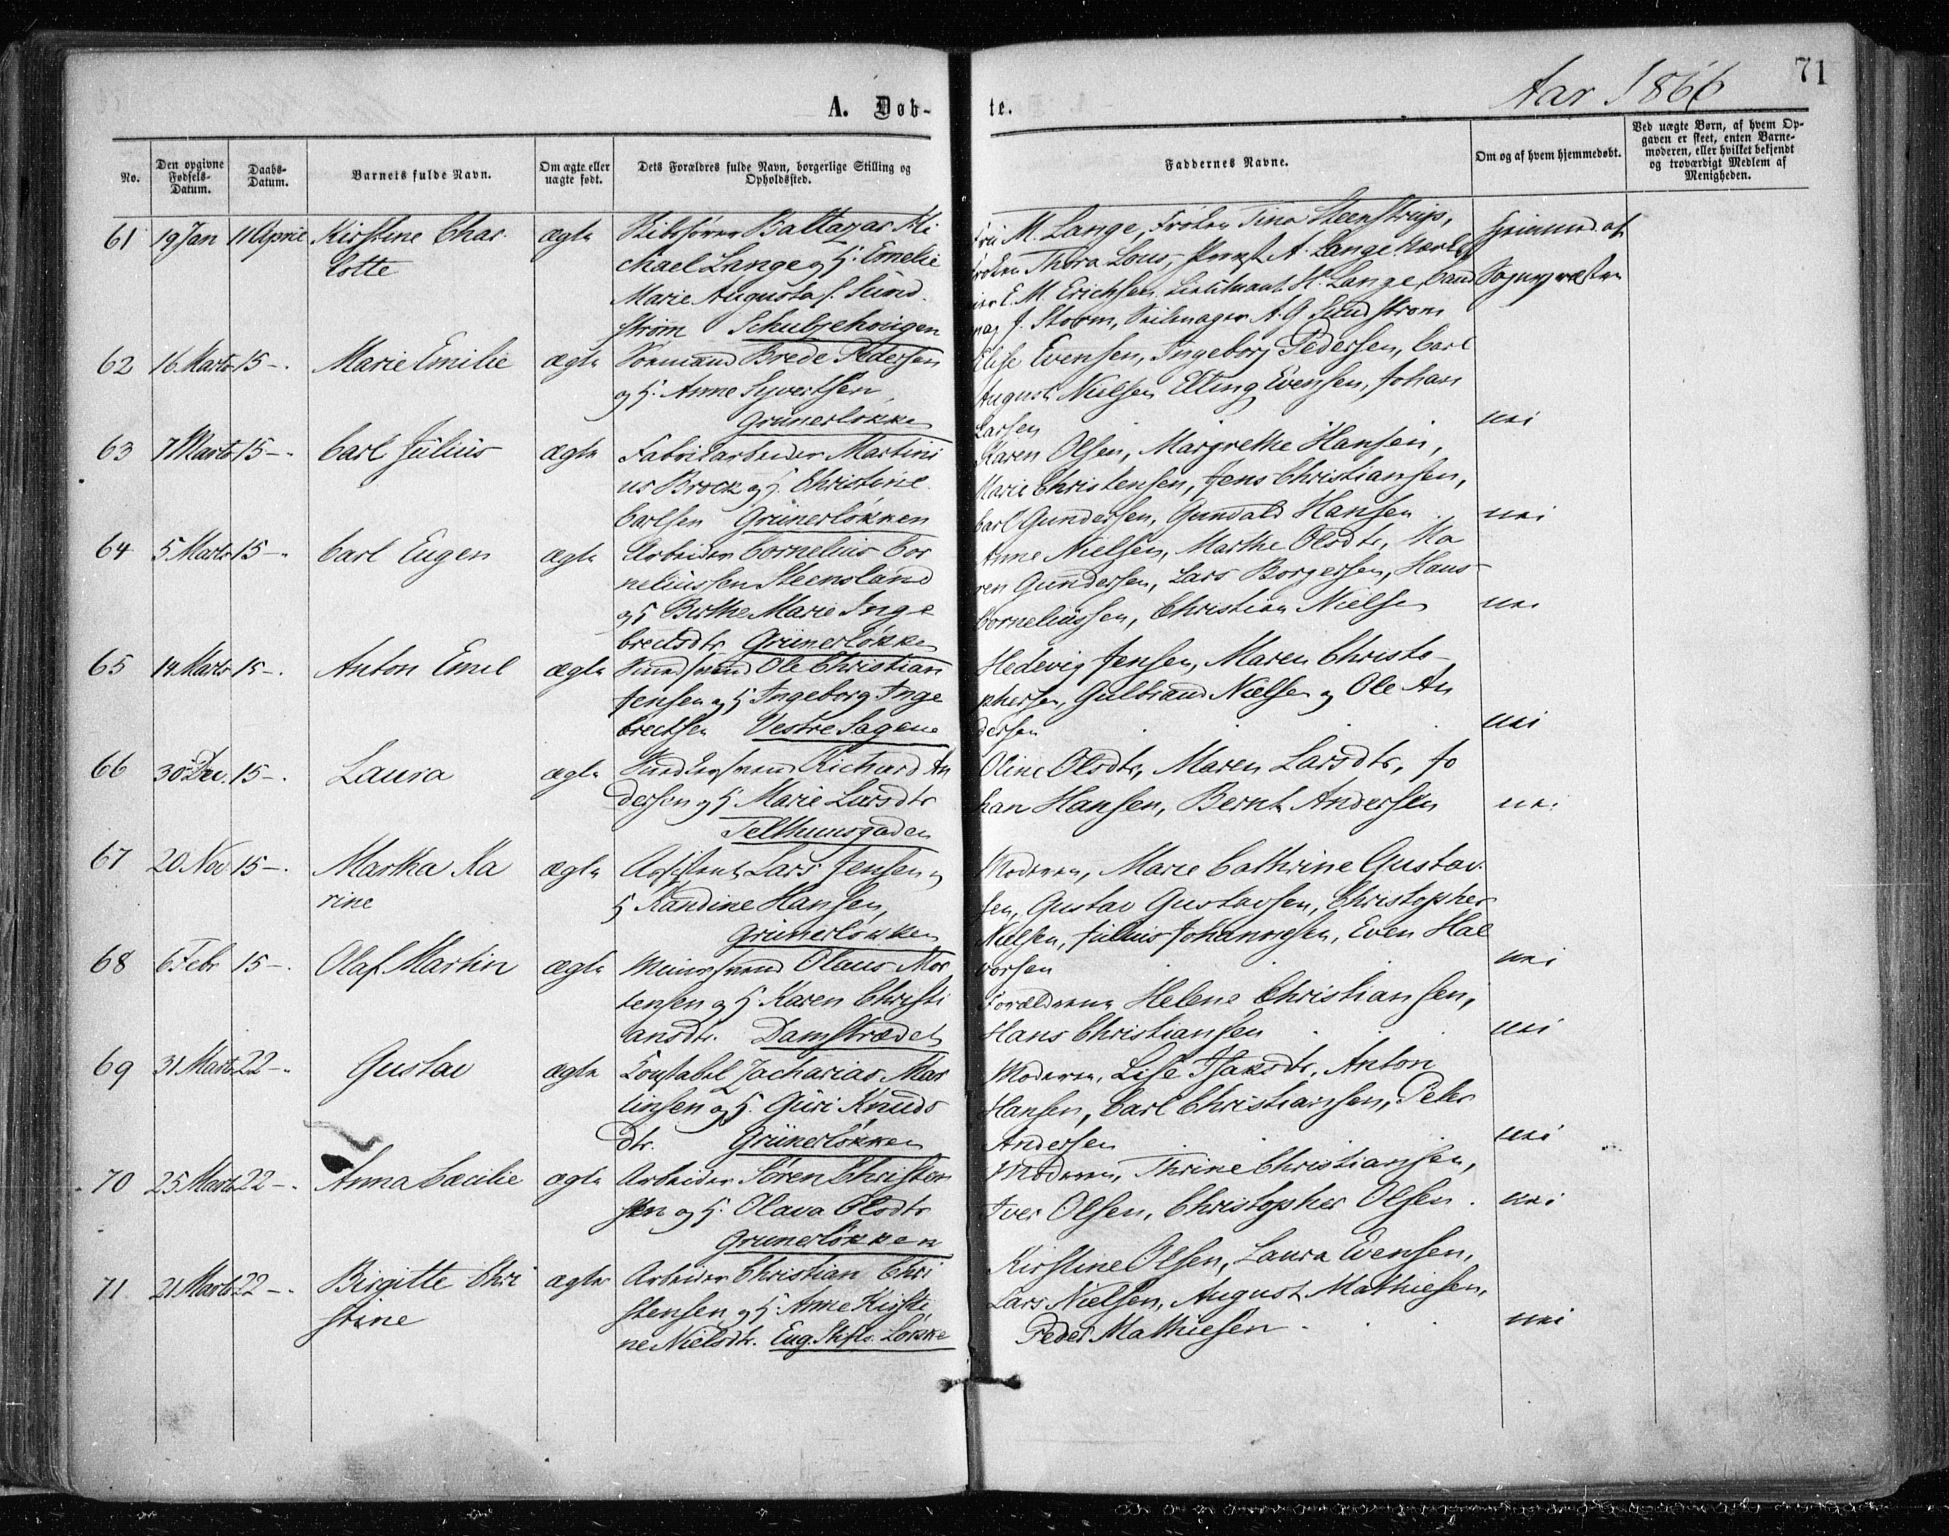 Aar 1866
71
A. Døb-
te.
No.
Den opgivne Fødsels-Datum.
Daabs-Datum.
Barnets fulde Navn.
Om ægte eller uægte født.
Dets Forældres fulde Navn, borgerlige Stilling og Opholdssted.
Faddernes Navne.
Om og af hvem hjemmedøbt.
Ved uægte Børn, af hvem Opgaven er skeet, enten Barnemoderen, eller hvilket bekjendt og troværdigt Medlem af Menigheden.
61 19 Jan 11 April Kirstine Char
lotte
ægte
Skibsfører Baltazar Mi
chael Lange og H. Emelie
Marie Augusta f. Sund
strøm Schulzehougen
Fru M. Lange, Frøken Tina Steenstrup,
Frøken Thora Lous, Provst A. Lange
E. M. Erichsen, Lieutnant H. Lange, Cand
mag J. Storm, Seilmager A. G. Sundstrøm
Hjemmed. af
Sognepræsten
62 16 Marts 15 -. Marie Emilie ægte
Sømand Brede Pedersen
og H. Anne Syvertsen,
Grünerløkken
Elise Evensen, Ingeborg Pedersen, Carl
August Nielsen, Elling Evensen, Johan
Larsen
nei
63 7 Marts 15 -. Carl Julius ægte
Fabrikarbeider Martini
us Brock og H. Christine
Carlsen Grünerløkken
Karen Olsen, Margrethe Hansen,
Marie Christensen, Jens Christiansen,
Carl Gundersen, Gundald Hansen
nei
64 5 Marts 15 -. Carl Eugen ægte
Arbeider Cornelius Cor
neliussen Steensland
og H Birthe Marie Inge
brectsdtr. Grünerløkken
Anne Nielsen, Marthe Olsdtr, Ma
ren Gundersen, Lars Borgersen, Hans
Corneliussen, Christian Nielsen
nei
65 14 Marts 15 -. Anton Emil ægte
Ole Christian
Jensen og H Ingeborg Inge
brectsen Vestre Sagene
Hedevig Jensen, Maren Christo-
phersen, Gulbrand Nielsen og Ole An
dersen
nei
66 30 Dec. 15 -. Laura ægte
Richard An
dersen og H Marie Larsdtr
Telthuusgaden
Oline Olsdtr, Maren Larsdtr, Jo
han Hansen, Bernt Andersen
nei
67 20 Nov 15 -. Martha Ka
rine
ægte
Assistent Lars Jensen og
H Randine Hansen,
Grünerløkken
Moderen, Marie Cathrine Gustav
sen, Gustav Gustavsen, Christopher
Nielsen, Julius Johannesen, Even Hal
vorsen
nei
68 6 Febr 15 -. Olaf Martin ægte
Muursvend Olaus Mor
tensen og H. Karen Christi
ansdtr. Damstrædet
Forældrene, Helene Christiansen,
Hans Christiansen
nei
69 31 Marts 22 -. Gustav ægte
Konstabel Zacharias Mar
tinsen og H. Guri Knuds
dtr. Grünerløkken
Moderen, Lise Isaksdtr, Anton
Hansen, Carl Christiansen, Peter
Andersen
nei
70 25 Marts 22 -. Anna Cæcilie ægte
Arbeider Søren Christen
sen og H. Olava Olsdtr
Grünerløkken
Moderen, Thrine Christiansen,
Iver Olsen, Christopher Olsen.
nei
71. 21 Marts 22 -. Birgitte Chri
stine
ægte
Arbeider Christian Chri
stensen og H Anne Kirsti
ne Nielsdtr. Eug. Stift. Løkke
Kirstine Olsen, Laura Evensen,
Lars Nielsen, August Mathiesen,
Peder Mathiesen
nei